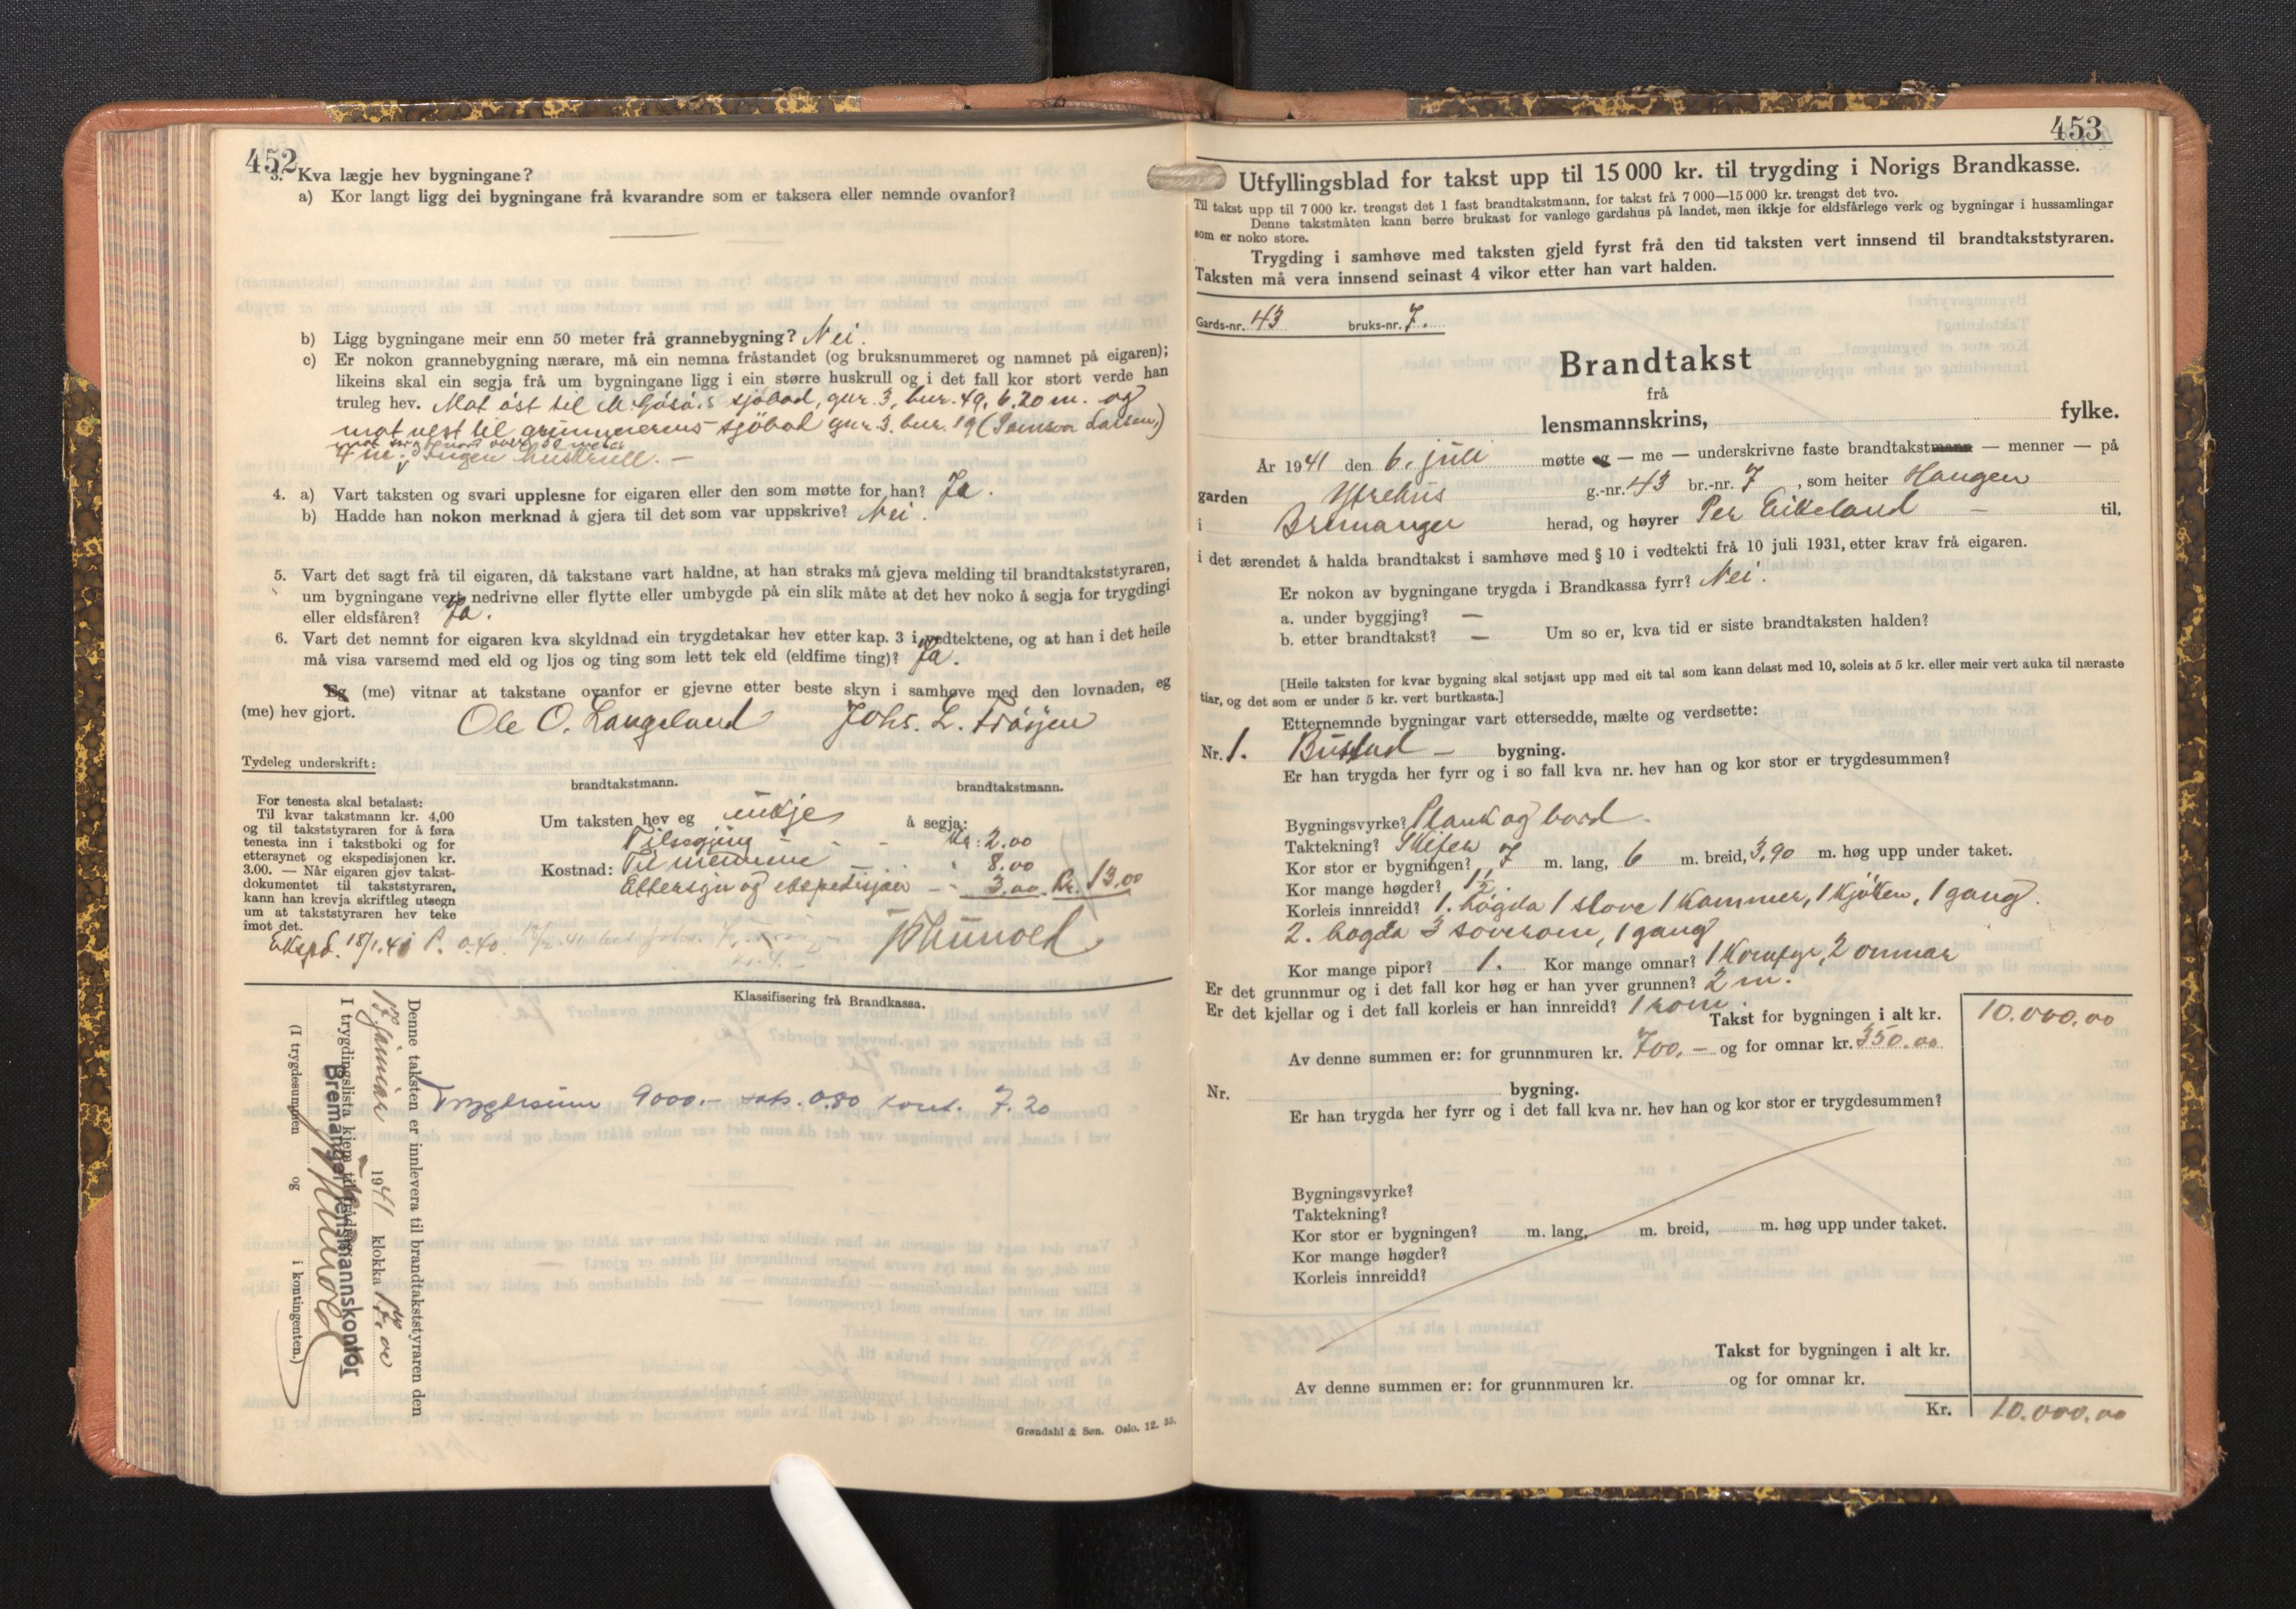 452
3. Kva lægje hev bygningane?
a) Kor langt ligg dei bygningane frå kvarandre som er taksera eller nemnde ovanfor?
b) Ligg bygningane meir enn 50 meter frå grannebygning? Nei.
c) Er nokon grannebygning nærare, må ein nemna fråstandet (og bruksnummeret og namnet på eigaren);
likeins skal ein segja frå um bygningane ligg i ein større huskrull og i det fall kor stort verde han
truleg hev. Mot öst til sjöbod, gnr. 3, bnr. 49, 6.20 m. og
mot vest til sjöbod gnr. 3. bnr. 19 (Samson Larsen,)
mot over 50 meter
4 m. Ingen huskrull. —
4. a) Vart taksten og svari upplesne for eigaren eller den som møtte for han? Ja.
b) Hadde han nokon merknad å gjera til det som var uppskrive? Nei.
5. Vart det sagt frå til eigaren, då takstane vart haldne, at han straks må gjeva melding til brandtakststyraren,
um bygningane vert nedrivne eller flytte eller umbygde på ein slik måte at det hev noko å segja for trygdingi
eller eldsfåren? Ja.
6. Vart det nemnt for eigaren kva skyldnad ein trygdetakar hev etter kap. 3 i vedtektene, og at han i det heile
må visa varsemd med eld og ljos og ting som lett tek eld (eldfime ting)? Ja.
Eg (me) vitnar at takstane ovanfor er gjevne etter beste skyn i samhøve med den lovnaden, eg
(me) hev gjort. Ole O. Langeland Johs. L. Frøyen
Tydeleg underskrift:
brandtakstmann. brandtakstmann.
For tenesta skal betalast:
Til kvar takstmann kr. 4,00
og til takststyraren for å føra
tenesta inn i takstboki og for
ettersynet og ekspedisjonen kr.
3.00. — Når eigaren gjev takst-
dokumentet til takststyraren,
kann han krevja skriftleg utsegn
um at takststyraren hev teke
imot det.
Um taksten hev eg inkje å segja:
Tilsegjing - - - Kr: 2.00
Kostnad: Til mennene — - " 8.00
Ettersyn og ekspedisjon — " 3.00. Kr. 13.00
Ekspd. 18/1.41 P. 0.40.
Klassifisering frå Brandkassa.
Trygdesum 9000.- sats. 0.80 kont. 7.20
Denne taksten er innlevera til brandtakststyraren den
17 januar 1941 klokka 17.00
I trygdingslista kjem til
Bremanger lensmannskontor
(I trygdesummen og i kontingenten.)
Grøndahl & Søn. Oslo. 12. 35.
453
Utfyllingsblad for takst upp til 15 000 kr. til trygding i Norigs Brandkasse.
Til takst upp til 7 000 kr. trengst det 1 fast brandtakstmann, for takst frå 7 000—15 000 kr. trengst det tvo.
Denne takstmåten kann berre brukast for vanlege gardshus på landet, men ikkje for eldsfårlege verk og bygningar i hussamlingar
som er noko store.
Trygding i samhøve med taksten gjeld fyrst frå den tid taksten vert innsend til brandtakststyraren.
Taksten må vera innsend seinast 4 vikor etter han vart halden.
Gards-nr. 43 bruks-nr. 7.
Brandtakst
frå
lensmannskrins, fylke.
År 1941 den 6. juli møtte eg — me — underskrivne faste brandtakstmann — menner — på
garden Ytrehus g.-nr. 43 br.-nr. 7, som heiter Haugen
i Bremanger herad, og høyrer Per Eikeland — til,
i det ærendet å halda brandtakst i samhøve med § 10 i vedtekti frå 10 juli 1931, etter krav frå eigaren.
Er nokon av bygningane trygda i Brandkassa fyrr? Nei.
a. under byggjing? —
b. etter brandtakst? — Um so er, kva tid er siste brandtaksten halden?
[Heile taksten for kvar bygning skal setjast upp med eit tal som kann delast med 10, soleis at 5 kr. eller meir vert auka til næraste
tiar, og det som er under 5 kr. vert burtkasta.]
Etternemnde bygningar vart ettersedde, mælte og verdsette:
Nr. 1. Bustad — bygning.
Er han trygda her fyrr og i so fall kva nr. hev han og kor stor er trygdesummen?
Bygningsvyrke? Plank og bord.
Taktekning? Skifer
Kor stor er bygningen? 7 m. lang, 6 m. breid, 3,90 m. høg upp under taket.
Kor mange høgder? 1 1/2.
Korleis innreidd? 1. högda 1 stove 1 kammer, 1 kjöken, 1 gang.
2. högda 3 soverom, 1 gang
Kor mange pipor? 1. Kor mange omnar? 1 komfyr, 2 omnar
Er det grunnmur og i det fall kor høg er han yver grunnen? 2 m.
Er det kjellar og i det fall korleis er han innreidd? 1 rom.
Takst for bygningen i alt kr. 10.000,00
Av denne summen er: for grunnmuren kr. 700.— og for omnar kr. 350.00
Nr. bygning.
Er han trygda her fyrr og i det fall kva nr. hev han og kor stor er trygdesummen?
Bygningsvyrke?
Taktekning?
Kor stor er bygningen? m. lang, m. breid, m. høg upp under taket.
Kor mange høgder?
Korleis innreidd?
Takst for bygningen i alt kr.
Av denne summen er: for grunnmuren kr. og for omnar kr.
Kr. 10.000,00